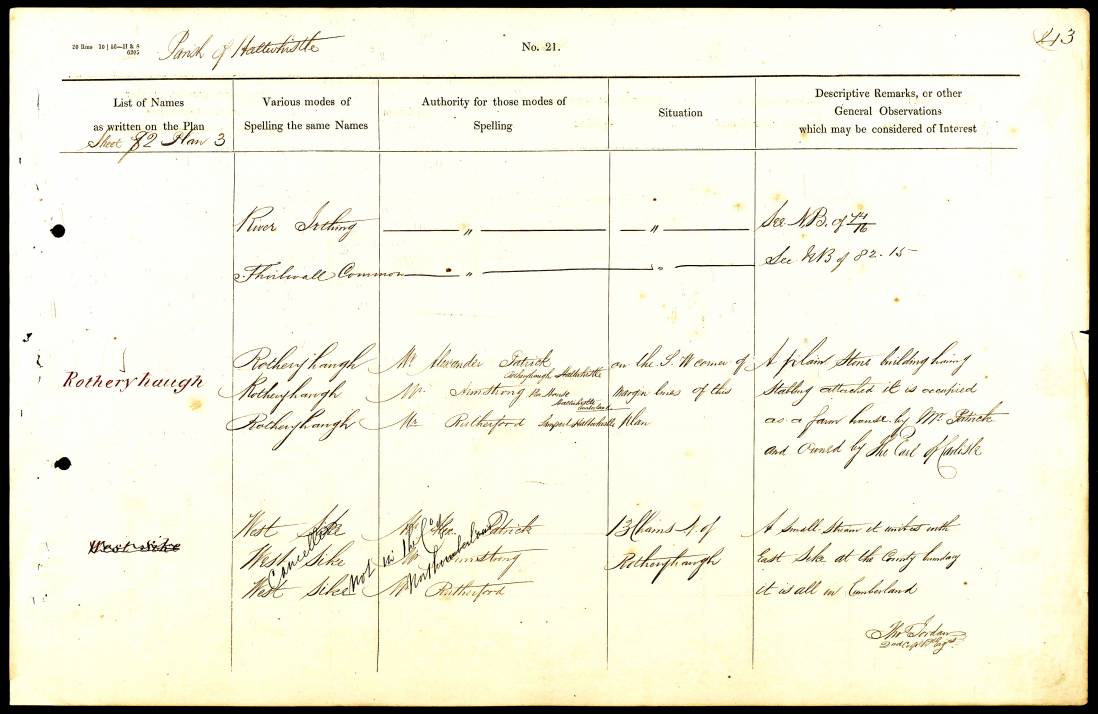 20 Rms 10 | 56—H & S
6205
Parish of Haltwhistle
No. 21.
243
List of Names
as written on the Plan
Sheet 82 Plan 3
Various modes of
Spelling the same Names
Authority for those modes of
Spelling
Situation
Descriptive Remarks, or other
General Observations
which may be considered of Interest
River Irthing
"
"
See N.B. of 74/16
Thirlwall Common
"
"
See NB of 82.15
Rotheryhaugh
Rotheryhaugh
Rotheryhaugh
Rotheryhaugh
Mr. Alexander Patrick
Rotheryhaugh Haltwhistle
Mr. Armstrong House
Haltwhistle
Cumberland
Mr Rutherford Haltwhistle
on the S. W corner of
Margin lines of this
Plan
A plain Stone building having
Stabling attached it is occupied
as a farm house by Mr. Patrick
and Owned by The Earl of Carlisle
West Sike
West Sike
West Sike
West Sike
Cancelled
not in the Co of
Northumberland
Mr Geo. Patrick
Mr. Armstrong
Mr Rutherford
13 Chains of
Rotheryhaugh
A small stream it unites with
East Sike at the County boundary
it is all in Cumberland
Thos Jordan
2nd Corpl RL Engrs.